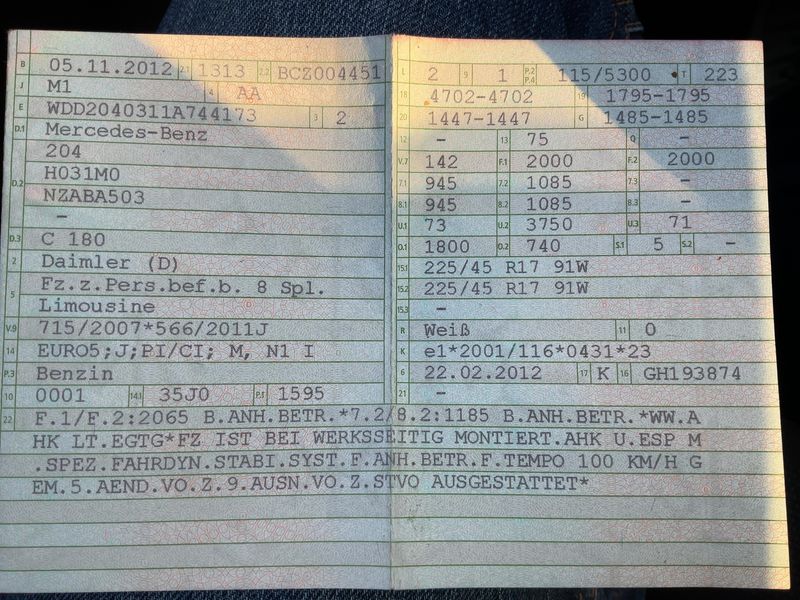 B 05.11.2012 2.1 1313 2.2 BCZ004451
J M1 4 AA
E WDD2040311A744173 3 2
D.1 Mercedes-Benz
204
D.2 H031M0
NZABA503
–
D.3 C 180
2 Daimler (D)
5 Fz.z.Pers.bef.b. 8 Spl.
Limousine
V.9 715/2007*566/2011J
14 EURO5;J;PI/CI; M, N1 I
P.3 Benzin
10 0001 14.1 35J0 P.1 1595
L 2 9 1 P.2 P.4 115/5300 T 223
18 4702-4702 19 1795-1795
20 1447-1447 G 1485-1485
12 – 13 75 Q –
V.7 142 F.1 2000 F.2 2000
7.1 945 7.2 1085 7.3 –
8.1 945 8.2 1085 8.3 –
U.1 73 U.2 3750 U.3 71
O.1 1800 O.2 740 S.1 5 S.2 –
15.1 225/45 R17 91W
15.2 225/45 R17 91W
15.3 –
R Weiß 11 0
K e1*2001/116*0431*23
6 22.02.2012 17 K 16 GH193874
21 –
22 F.1/F.2:2065 B.ANH.BETR.*7.2/8.2:1185 B.ANH.BETR.*WW.A
HK LT.EGTG*FZ IST BEI WERKSSEITIG MONTIERT.AHK U.ESP M
.SPEZ.FAHRDYN.STABI.SYST.F.ANH.BETR.F.TEMPO 100 KM/H G
EM.5.AEND.VO.Z.9.AUSN.VO.Z.STVO AUSGESTATTET*